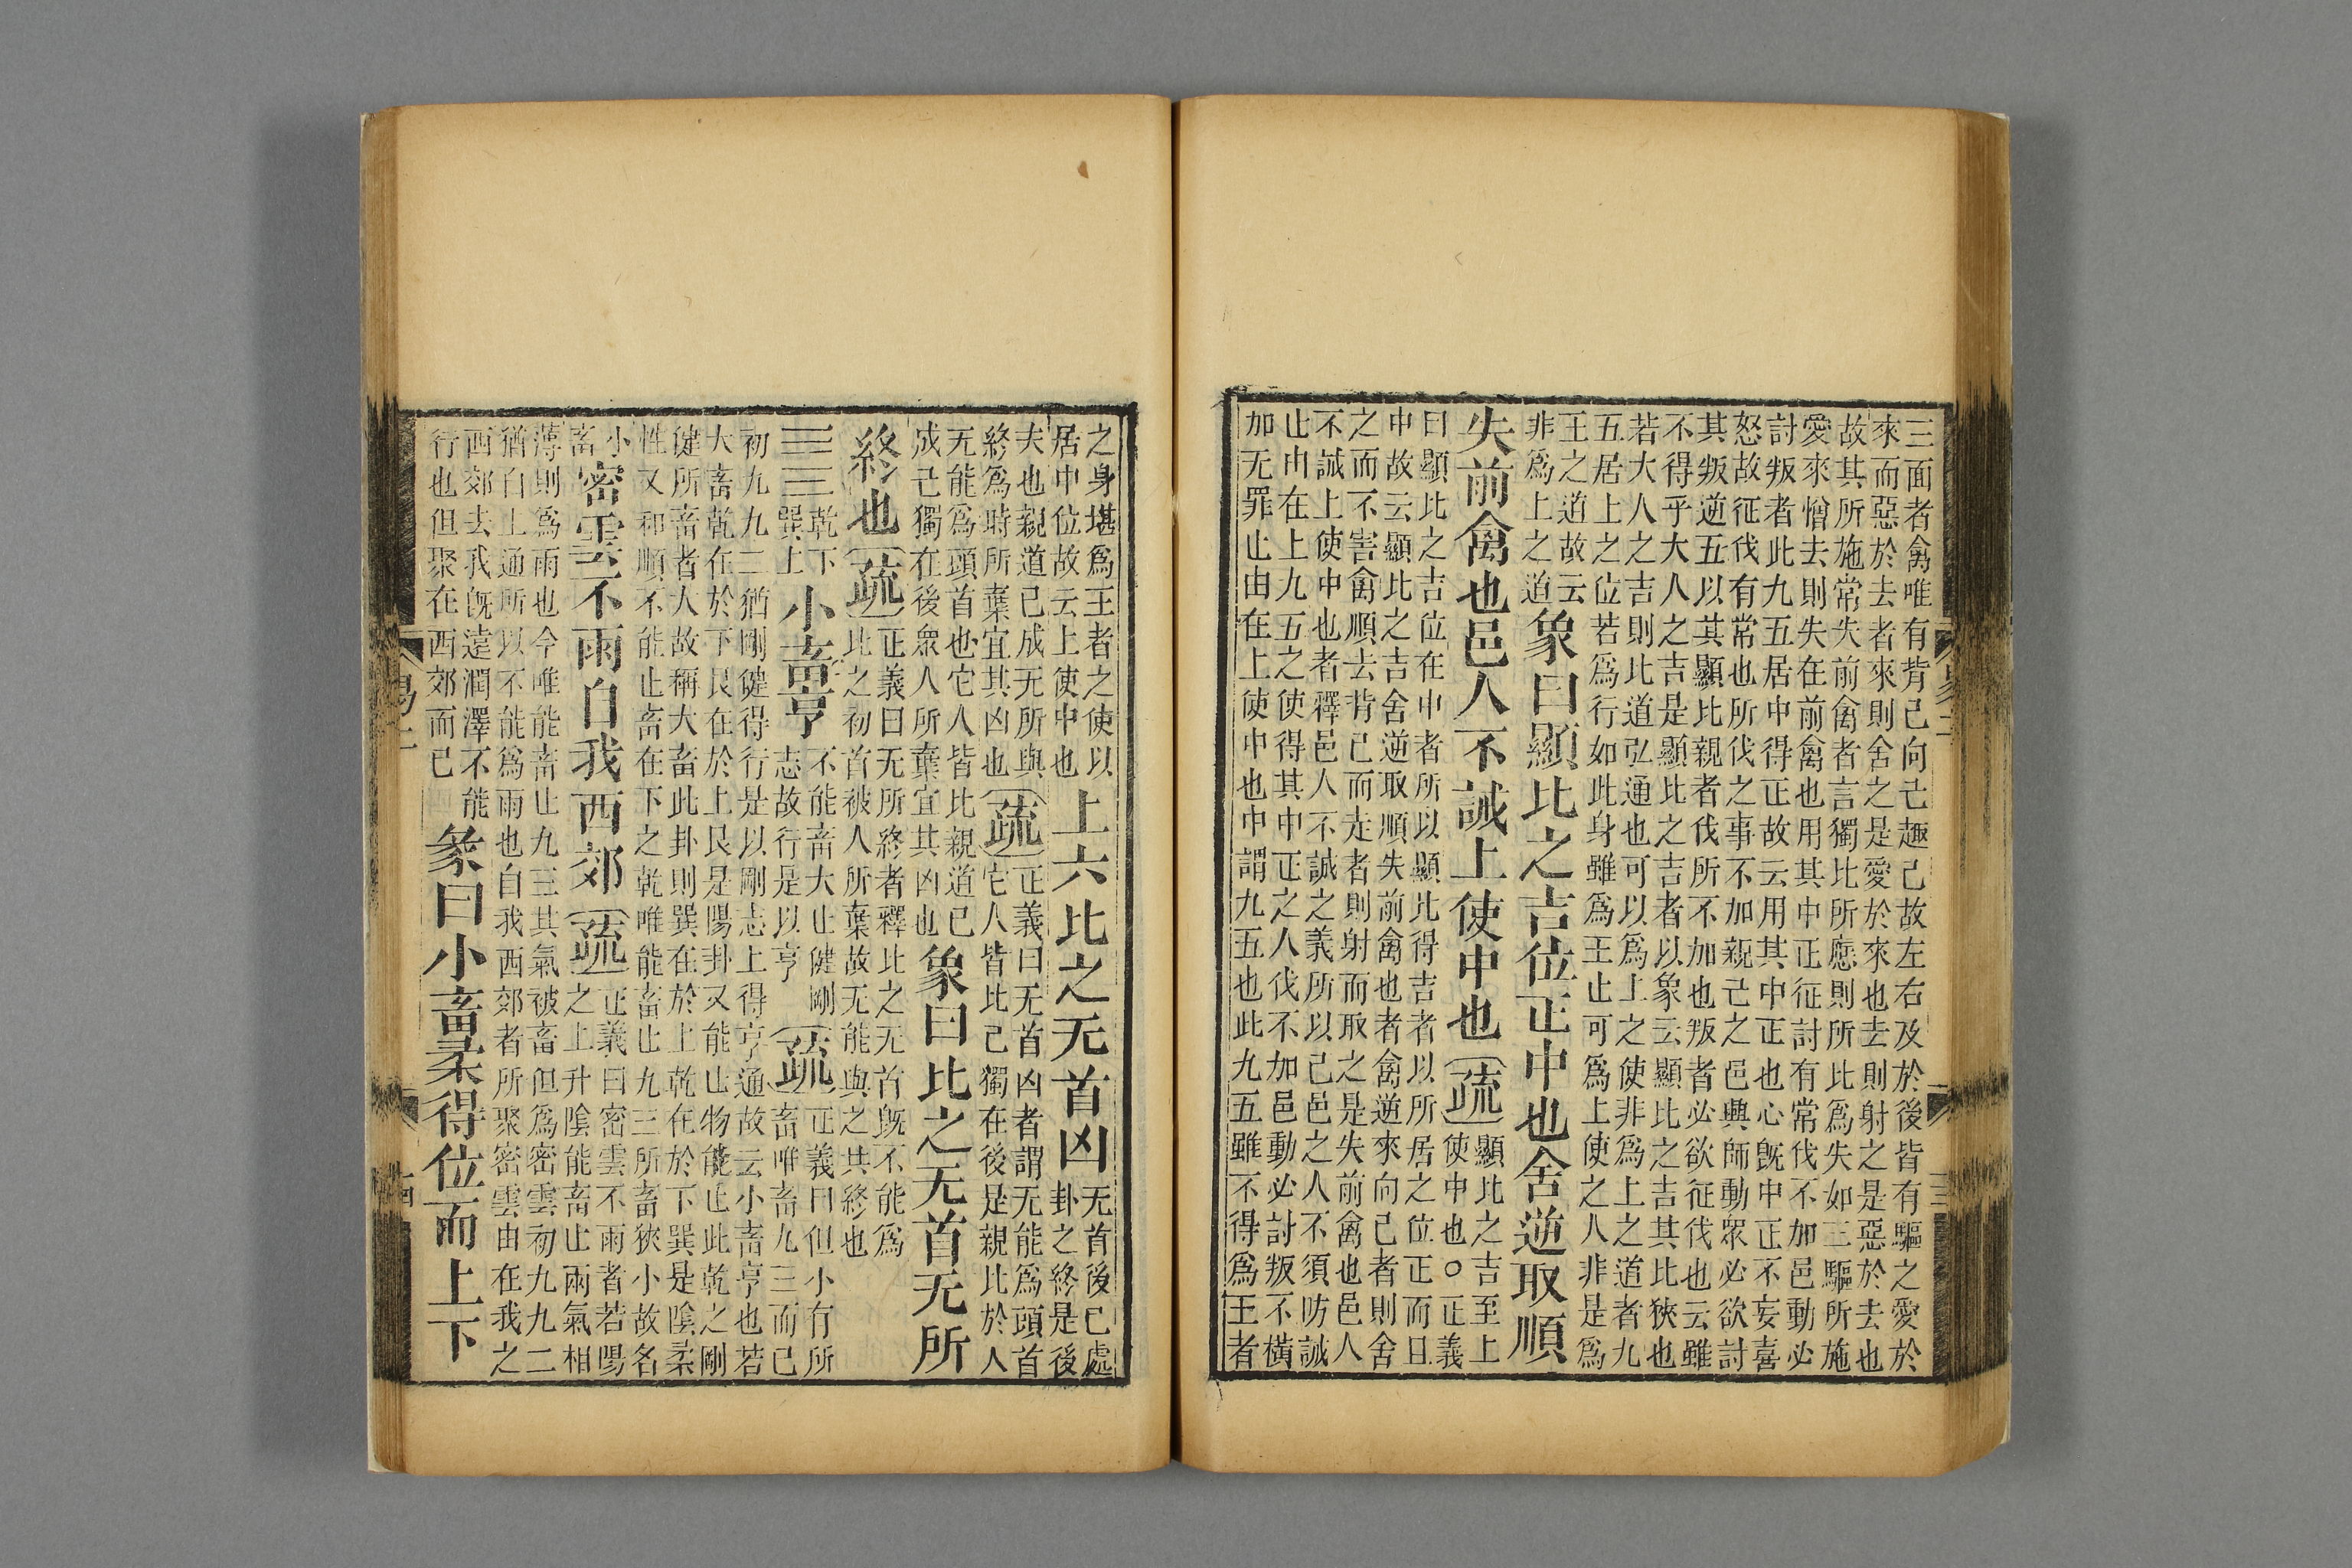 三面者禽唯有背己向己趣己故左右及於後皆有驅之愛於
來而惡於去者來則舍之是愛於來也去則射之是惡於去也
故其所施常失前禽者言獨比所應則所比爲失如三驅所施
愛來憎去則失在前禽也用其中正征討有常伐不加邑動必
討叛者此九五居中得正故云用其中正也心既中正不妄喜
怒故征伐有常也所伐之事不加親己之邑興師動眾必欲討
其叛逆五以其顯比親者伐所不加也叛者必欲征伐也云雖
不得乎大人之吉是顯比之吉者以象云顯比之吉其比狹也
若大人之吉則比道弘通也可以爲上之使非爲上之道者九
五居上之位若爲行如此身雖爲王止可爲上使之人非是爲
王之道故云
非爲上之道
象曰顯比之吉位正中也舍逆取順
失前禽也邑人不誡上使中也疏
顯比之吉至上
使中也○正義
曰顯比之吉位在中者所以顯比得吉者以所居之位正而曰
中故云顯比之吉舍逆取順失前禽也者禽逆來向己者則舍
之而不害禽順去背己而走者則射而取之是失前禽也邑人
不誡上使中也者釋邑人不誡之義所以己邑之人不須防誡
止由在上九五之使得其中正之人伐不加邑動必討叛不橫
加无罪止由在上使中也中謂九五也此九五雖不得爲王者
之身堪爲王者之使以
居中位故云上使中也
上六比之无首凶
无首後已處
卦之終是後
夫也親道已成无所與
終爲時所棄宜其凶也
疏
正義曰无首凶者謂无能爲頭首
它人皆比己獨在後是親比於人
无能爲頭首也它人皆比親道已
成己獨在後眾人所棄宜其凶也
象曰比之无首无所
終也疏
正義曰无所終者釋比之无首既不能爲
比之初首被人所棄故无能與之其終也
乾下
巽上
小畜亨
不能畜大止健剛
志故行是以亨
疏
正義曰但小有所
畜唯畜九三而已
初九九二猶剛健得行是以剛志上得亨通故云小畜亨也若
大畜乾在於下艮在於上艮是陽卦又能止物能止此乾之剛
健所畜者大故稱大畜此卦則巽在於上乾在於下巽是陰柔
性又和順不能止畜在下之乾唯能畜止九三所畜狹小故名
小
畜
密雲不雨自我西郊疏
正義曰密雲不雨者若陽
之上升陰能畜止兩氣相
薄則爲雨也今唯能畜止九三其氣被畜但爲密雲初九九二
猶自上通所以不能爲雨也自我西郊者所聚密雲由在我之
西郊去我既遠潤澤不能
行也但聚在西郊而已
彖曰小畜柔得位而上下